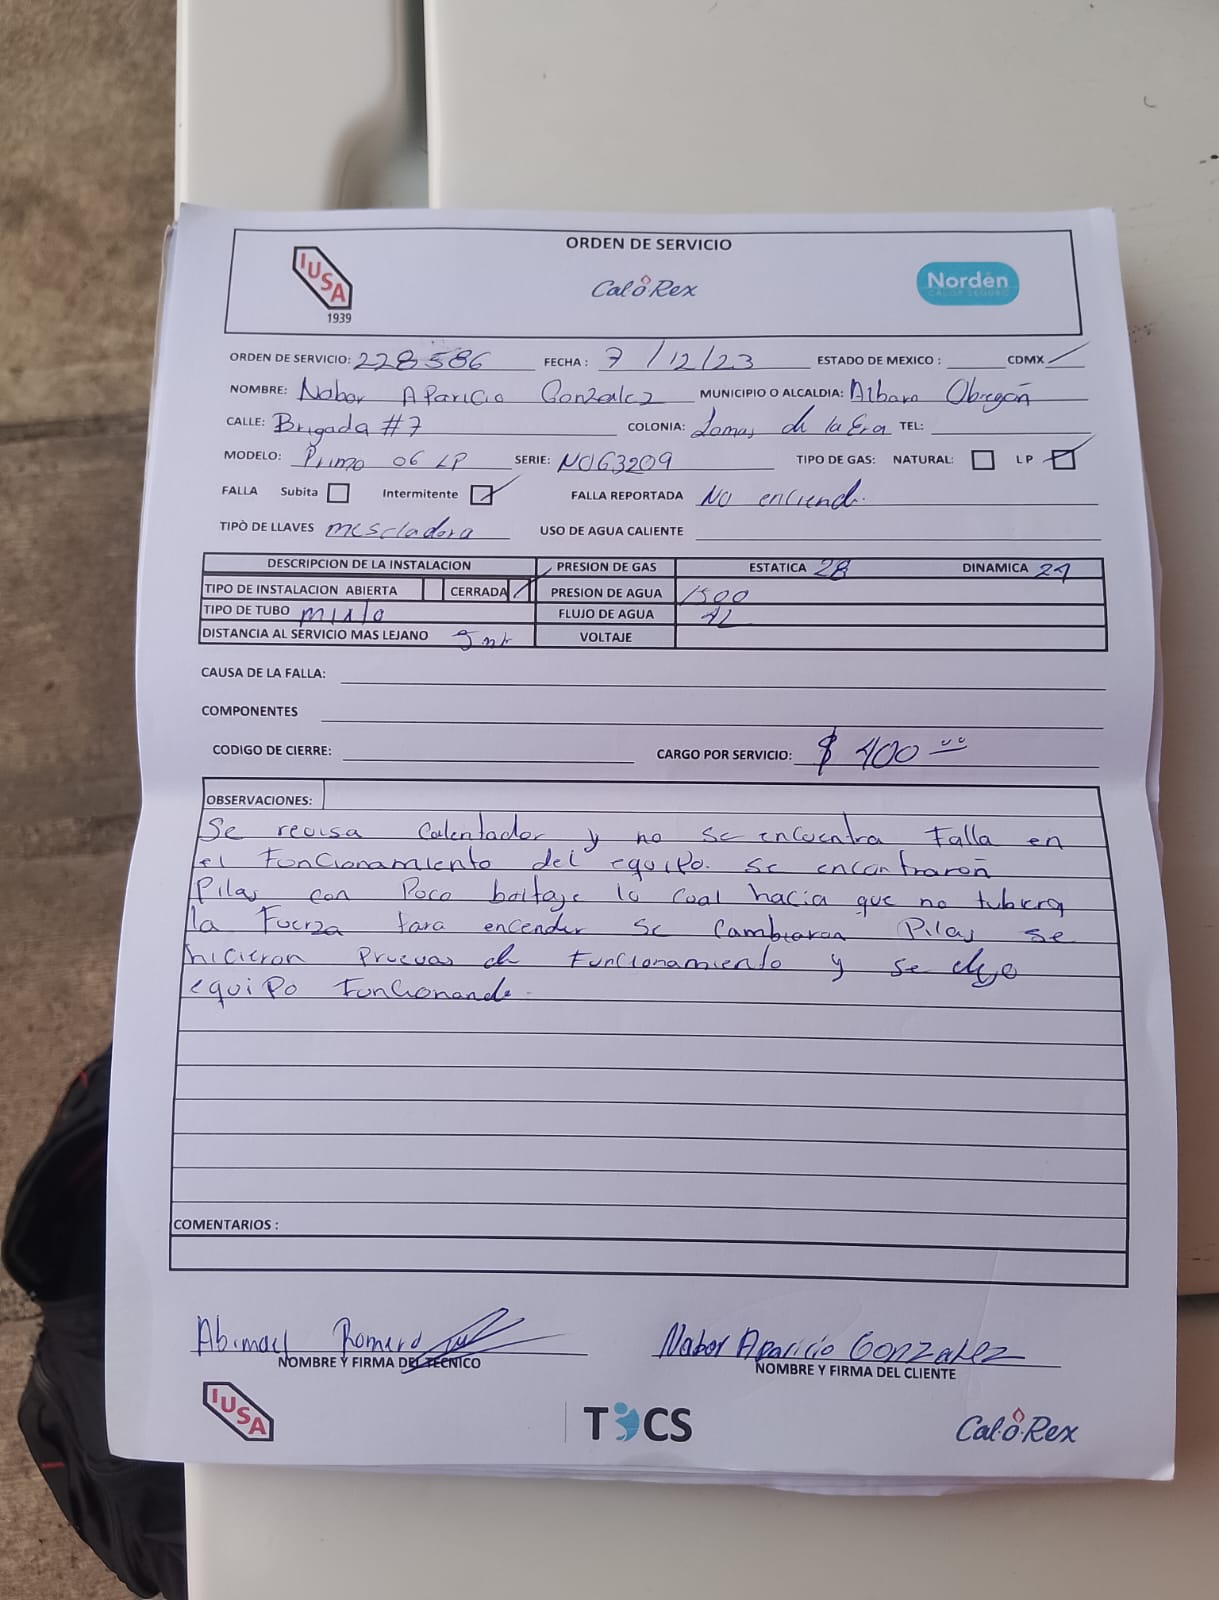 ORDEN DE SERVICIO
IUSA
1939
Cal-o-Rex
Nordën
CALOR SEGURO
ORDEN DE SERVICIO: 228586 FECHA : 7 / 12 / 23 ESTADO DE MEXICO : CDMX
NOMBRE: Nabor Aparicio Gonzalez MUNICIPIO O ALCALDIA: Albaro Obregon
CALLE: Brigada #7 COLONIA: Lomas de la Era TEL:
MODELO: Primo 06 LP SERIE: NO63209 TIPO DE GAS: NATURAL: LP
FALLA Subita Intermitente FALLA REPORTADA No enciende.
TIPÒ DE LLAVES mescladora USO DE AGUA CALIENTE
DESCRIPCION DE LA INSTALACION PRESION DE GAS ESTATICA 28 DINAMICA
TIPO DE INSTALACION ABIERTA CERRADA PRESION DE AGUA 1500
TIPO DE TUBO mixto FLUJO DE AGUA
DISTANCIA AL SERVICIO MAS LEJANO VOLTAJE
CAUSA DE LA FALLA:
COMPONENTES
CODIGO DE CIERRE: CARGO POR SERVICIO: $ 400 00
OBSERVACIONES:
Se revisa Calentador y no se encuentra Falla en
el Funcionamiento del equipo. se encontraron
Pilas con Poco boltaje lo cual hacia que no tubiera
la Fuerza para encender se Cambiaron Pilas se
hicieron Pruevas de Funcionamiento y se dejo
equipo Funcionando.
COMENTARIOS :
Abimael Romero Nabor Aparicio Gonzalez
NOMBRE Y FIRMA DEL TECNICO NOMBRE Y FIRMA DEL CLIENTE
IUSA
TICS
Cal-o-Rex